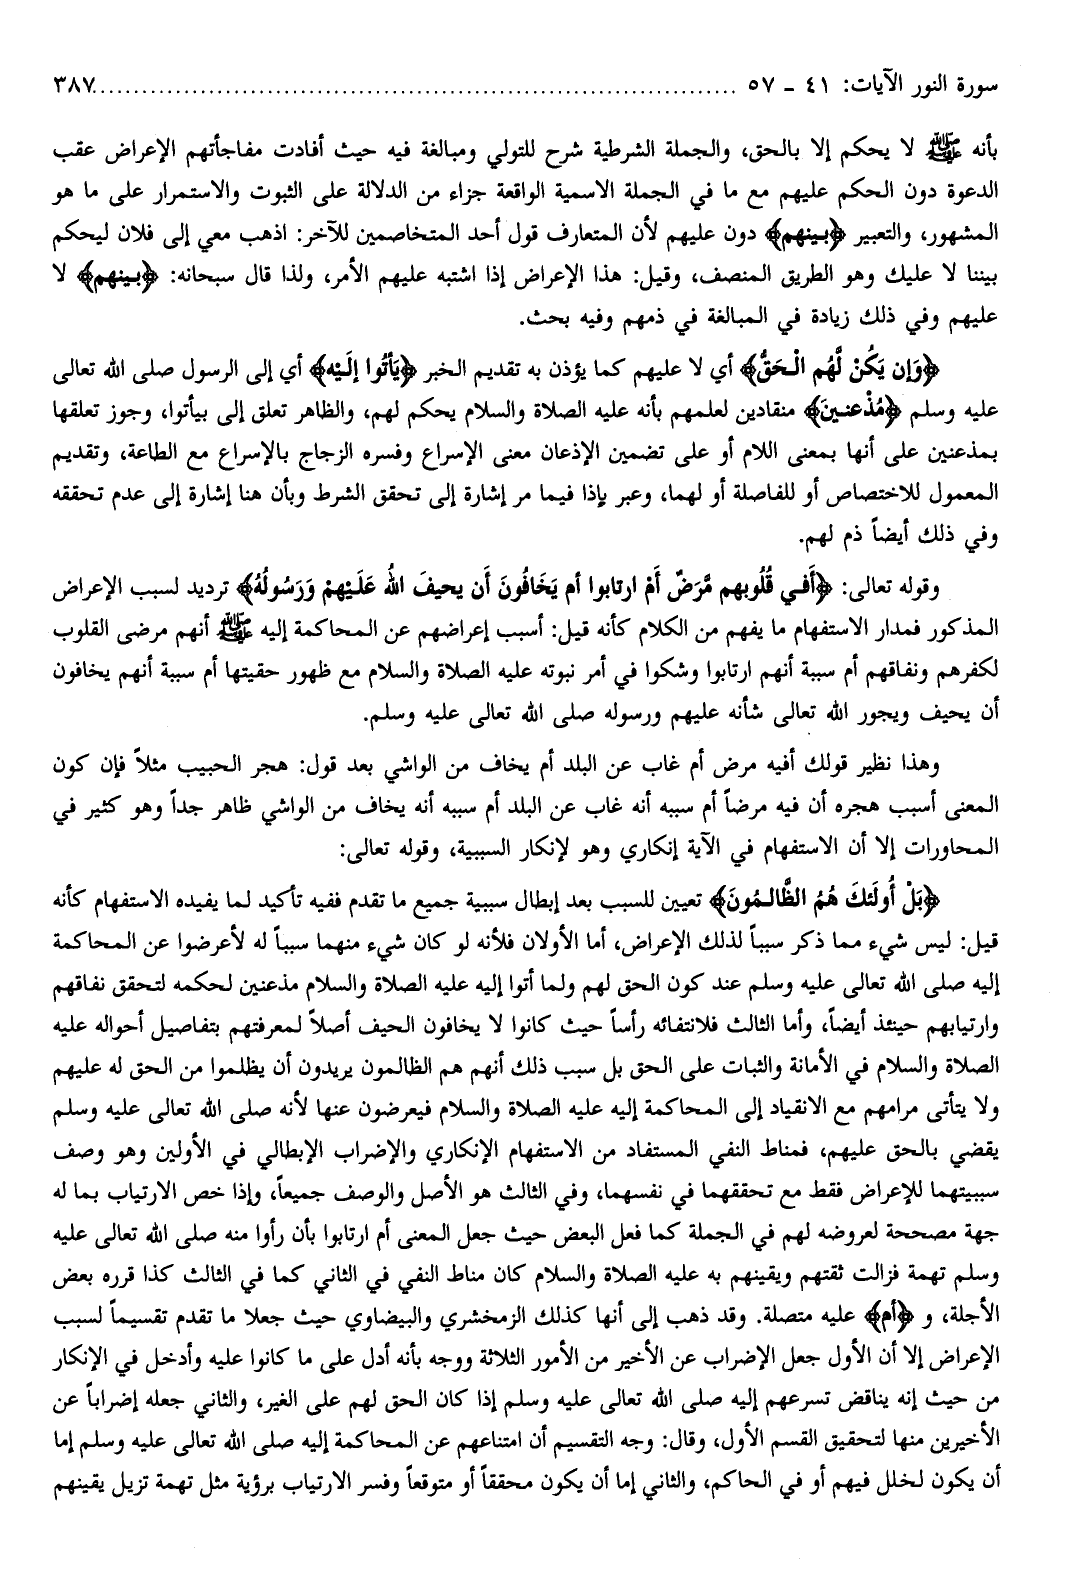 سورة النور الآيات: ٤١ ـ ٥٧ ........................................................................ ٣٨٧
بأنه ﷺ لا يحكم إلا بالحق، والجملة الشرطية شرح للتولي ومبالغة فيه حيث أفادت مفاجأتهم الإعراض عقب
الدعوة دون الحكم عليهم مع ما في الجملة الاسمية الواقعة جزاء من الدلالة على الثبوت والاستمرار على ما هو
المشهور، والتعبير ﴿بينهم﴾ دون عليهم لأن المتعارف قول أحد المتخاصمين للآخر: اذهب معي إلى فلان ليحكم
بيننا لا عليك وهو الطريق المنصف، وقيل: هذا الإعراض إذا اشتبه عليهم الأمر، ولذا قال سبحانه: ﴿بينهم﴾ لا
عليهم وفي ذلك زيادة في المبالغة في ذمهم وفيه بحث.
﴿وَإن يَكُنْ لَّهُم الْحَقُّ﴾ أي لا عليهم كما يؤذن به تقديم الخبر ﴿يَأتُوا إلَيْه﴾ أي إلى الرسول صلى الله تعالى
عليه وسلم ﴿مُذْعنينَ﴾ منقادين لعلمهم بأنه عليه الصلاة والسلام يحكم لهم، والظاهر تعلق إلى بيأتوا، وجوز تعلقها
بمذعنين على أنها بمعنى اللام أو على تضمين الإذعان معنى الإسراع وفسره الزجاج بالإسراع مع الطاعة، وتقديم
المعمول للاختصاص أو للفاصلة أو لهما، وعبر بإذا فيما مر إشارة إلى تحقق الشرط وبأن هنا إشارة إلى عدم تحققه
وفي ذلك أيضاً ذم لهم.
وقوله تعالى: ﴿أَفي قُلُوبهم مَّرَضٌ أمْ ارتابوا أم يَخَافُونَ أن يحيفَ اللهُ عَلَيْهمْ وَرَسُولُهُ﴾ ترديد لسبب الإعراض
المذكور فمدار الاستفهام ما يفهم من الكلام كأنه قيل: أسبب إعراضهم عن المحاكمة إليه ﷺ أنهم مرضى القلوب
لكفرهم ونفاقهم أم سببة أنهم ارتابوا وشكوا في أمر نبوته عليه الصلاة والسلام مع ظهور حقيتها أم سببة أنهم يخافون
أن يحيف ويجور الله تعالى شأنه عليهم ورسوله صلى الله تعالى عليه وسلم.
وهذا نظير قولك أفيه مرض أم غاب عن البلد أم يخاف من الواشي بعد قول: هجر الحبيب مثلاً فإن كون
المعنى أسبب هجره أن فيه مرضاً أم سببه أنه غاب عن البلد أم سببه أنه يخاف من الواشي ظاهر جداً وهو كثير في
المحاورات إلا أن الاستفهام في الآية إنكاري وهو لإنكار السببية، وقوله تعالى:
﴿بَلْ أُولَئكَ هُمُ الظَّالمُونَ﴾ تعيين للسبب بعد إبطال سببية جميع ما تقدم ففيه تأكيد لما يفيده الاستفهام كأنه
قيل: ليس شيء مما ذكر سبباً لذلك الإعراض، أما الأولان فلأنه لو كان شيء منهما سبباً له لأعرضوا عن المحاكمة
إليه صلى الله تعالى عليه وسلم عند كون الحق لهم ولما أتوا إليه عليه الصلاة والسلام مذعنين لحكمه لتحقق نفاقهم
وارتيابهم حينئذ أيضاً، وأما الثالث فلانتفائه رأساً حيث كانوا لا يخافون الحيف أصلاً لمعرفتهم بتفاصيل أحواله عليه
الصلاة والسلام في الأمانة والثبات على الحق بل سبب ذلك أنهم هم الظالمون يريدون أن يظلموا من الحق له عليهم
ولا يتأتى مرامهم مع الانقياد إلى المحاكمة إليه عليه الصلاة والسلام فيعرضون عنها لأنه صلى الله تعالى عليه وسلم
يقضي بالحق عليهم، فمناط النفي المستفاد من الاستفهام الإنكاري والإضراب الإبطالي في الأولين وهو وصف
سببيتهما للإعراض فقط مع تحققهما في نفسهما، وفي الثالث هو الأصل والوصف جميعاً، وإذا خص الارتياب بما له
جهة مصححة لعروضه لهم في الجملة كما فعل البعض حيث جعل المعنى أم ارتابوا بأن رأوا منه صلى الله تعالى عليه
وسلم تهمة فزالت ثقتهم ويقينهم به عليه الصلاة والسلام كان مناط النفي في الثاني كما في الثالث كذا قرره بعض
الأجلة، و ﴿أم﴾ عليه متصلة. وقد ذهب إلى أنها كذلك الزمخشري والبيضاوي حيث جعلا ما تقدم تقسيماً لسبب
الإعراض إلا أن الأول جعل الإضراب عن الأخير من الأمور الثلاثة ووجه بأنه أدل على ما كانوا عليه وأدخل في الإنكار
من حيث إنه يناقض تسرعهم إليه صلى الله تعالى عليه وسلم إذا كان الحق لهم على الغير، والثاني جعله إضراباً عن
الأخيرين منها لتحقيق القسم الأول، وقال: وجه التقسيم أن امتناعهم عن المحاكمة إليه صلى الله تعالى عليه وسلم إما
أن يكون لخلل فيهم أو في الحاكم، والثاني إما أن يكون محققاً أو متوقعاً وفسر الارتياب برؤية مثل تهمة تزيل يقينهم